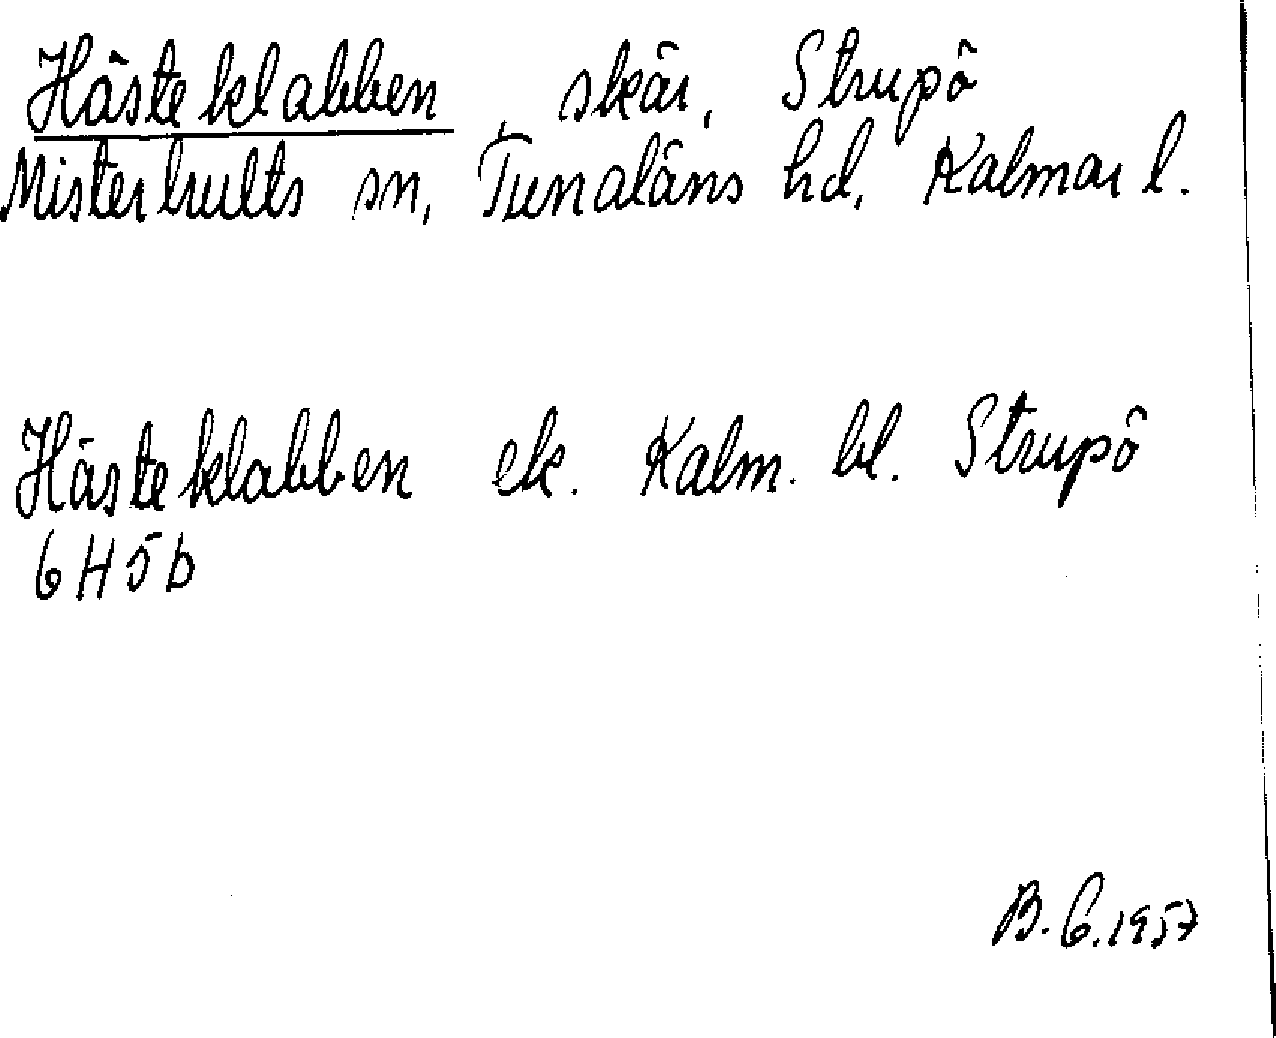 Hästeklabben, skär, Strupö
Misterhults sn, Tunaläns hd, Kalmar l.
Hästeklabben ek. Kalm. bl. Strupö
6H5b
B.G.1957